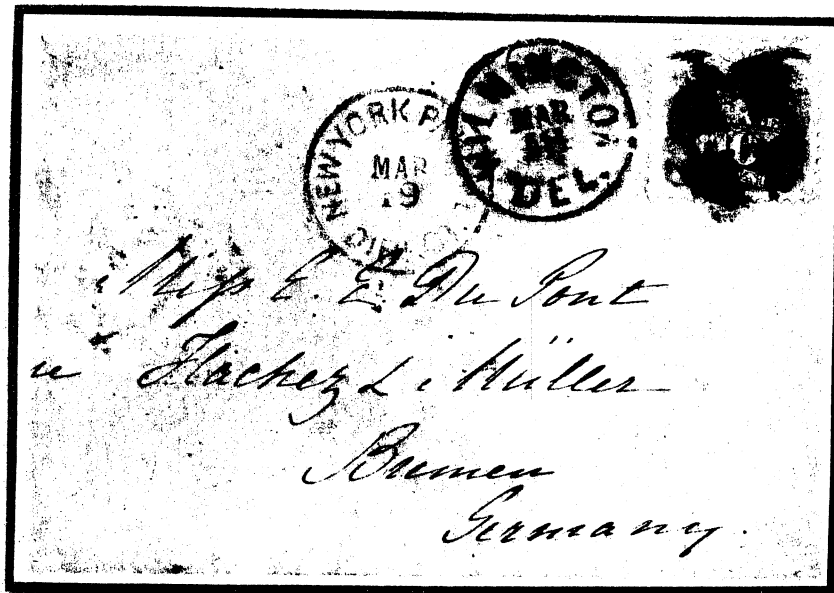 NEW YORK P
MAR
19
WILMINGTON
MAR
DEL.
Miss E. E. Du Pont
Hachez & Müller
Bremen
Germany.